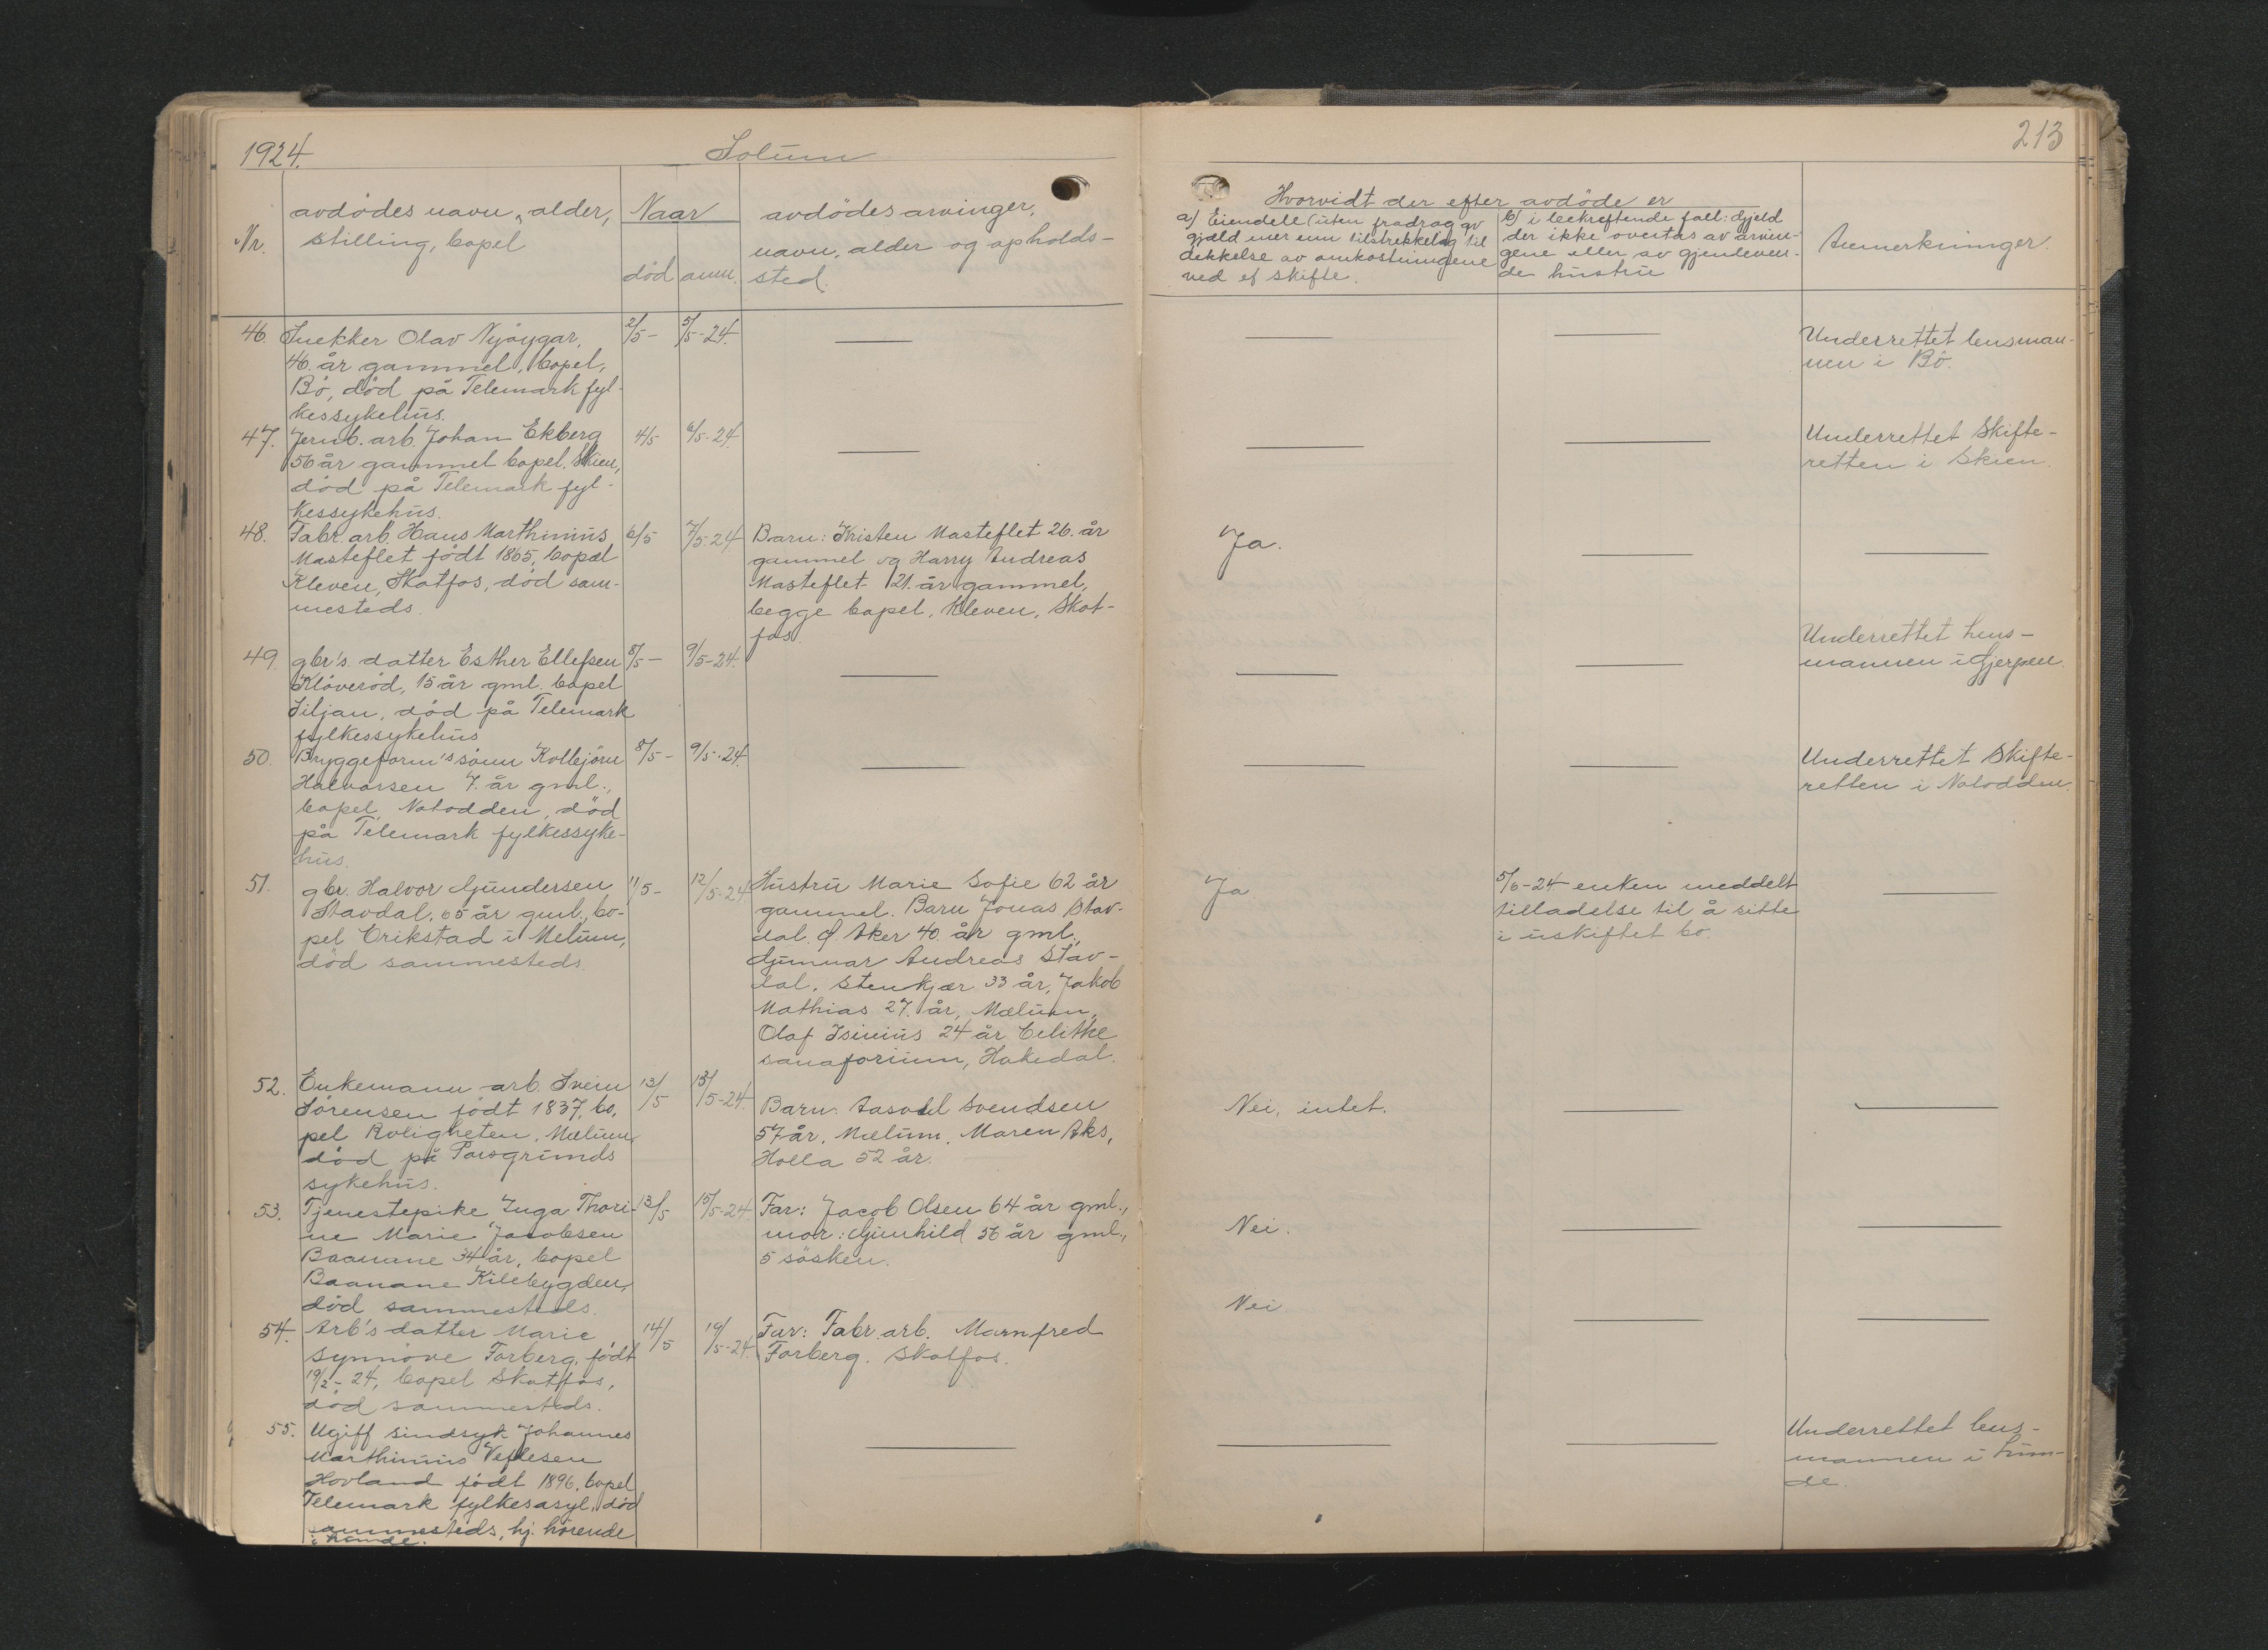 1924.
Solum
213
Nr.
avdödes navn, alder,
stilling, bopel
Naar
död
anm.
avdödes arvinger,
navn, alder og opholds-
sted.
Hvorvidt der efter avdöde er
a) Eiendele (uten fradrag av
gjæld mer enn tilstrekkelig til
dekkelse av omkostningene
ved et skifte.
b) i bekreftende fall: Gjeld
der ikke overtas av arvin-
gene eller av gjenleven-
de hustru
Anmerkninger.
46. Snekker Olav Nyöygar,
46. år gammel, bopel,
Bö, död på Telemark fyl-
kessykehus.
2/5 -
5/5-24.
Underrettet lensman-
nen i Bö.
47. Jernb. arb. Johan Ekberg
56 år gammel bopel. Skien,
död på Telemark fyl-
kessykehus.
4/5
6/5-24
Underrettet Skifte-
retten i Skien.
48. Fabr. arb. Hans Marthinius
Masteflet födt 1865, bopæl
Kleven, Skotfos, död sam-
mesteds.
6/5
7/5-24
Barn: Kristen Masteflet 26. år
gammel og Harry Andreas
Masteflet 21. år gammel,
begge bopel. Kleven, Skot-
fos.
Ja.
49. gbr's datter Esther Ellefsen
Klöveröd, 15 år gml. bopel
Siljan, död på Telemark
fylkessykehus
8/5 -
9/5-24.
Underrettet lens-
mannen i Gjerpen.
50. Bryggeform's sönn Kollejörn
Halvorsen 7. år gml.,
bopel, Notodden, död
på Telemark fylkessyke-
hus.
8/5 -
9/5-24.
Underrettet Skifte-
retten i Notodden.
51. gbr. Halvor Gundersen
Stavdal, 65 år gml., bo-
pel Erikstad i Melum,
död sammesteds.
11/5 -
12/5-24
Hustru Marie Sofie 62 år
gammel. Barn Jonas Stav-
dal. Ø. Aker 40. år gml.,
Gunnar Andreas Stav-
dal. Stenkjær 33 år, Jakob
Mathias 27. år, Mælum,
Olaf Isinius 24 år
sanatorium, Hakedal.
Ja
5/6-24 enken meddelt
tilladelse til å sitte
i uskiftet bo.
52. Enkemann arb. Svein
Sörensen födt 1837, bo,
pel Roligheten, Mælum,
död på Porsgrunds
sykehus.
13/5
13/5-24.
Barn: Aasold Svendsen
57 år. Mælum. Maren Aks,
Holla 52 år.
Nei, intet.
53. Tjenestepike Inga Thori-
ne Marie Jacobsen
Baanane 34 år, bopel
Baanane Kilebygden,
död sammesteds.
13/5
15/5-24.
Far: Jacob Olsen 64 år gml.,
mor: Gunhild 56 år gml.,
5 sösken.
Nei.
54. Arb's datter Marie
Synnöve Forberg, födt
19/2-24, bopel Skotfos,
död sammesteds.
14/5
19/5-24.
Far: Fabr. arb. Marnfred
Forberg. Skotfos.
Nei
55. Ugift sindsyk Johannes
Marthinius Veflesen
Hovland födt 1896, bopel
Telemark fylkesasyl, död
sammesteds, hj. hörende
i Lunde.
Underrettet lens-
mannen i Lun-
de.